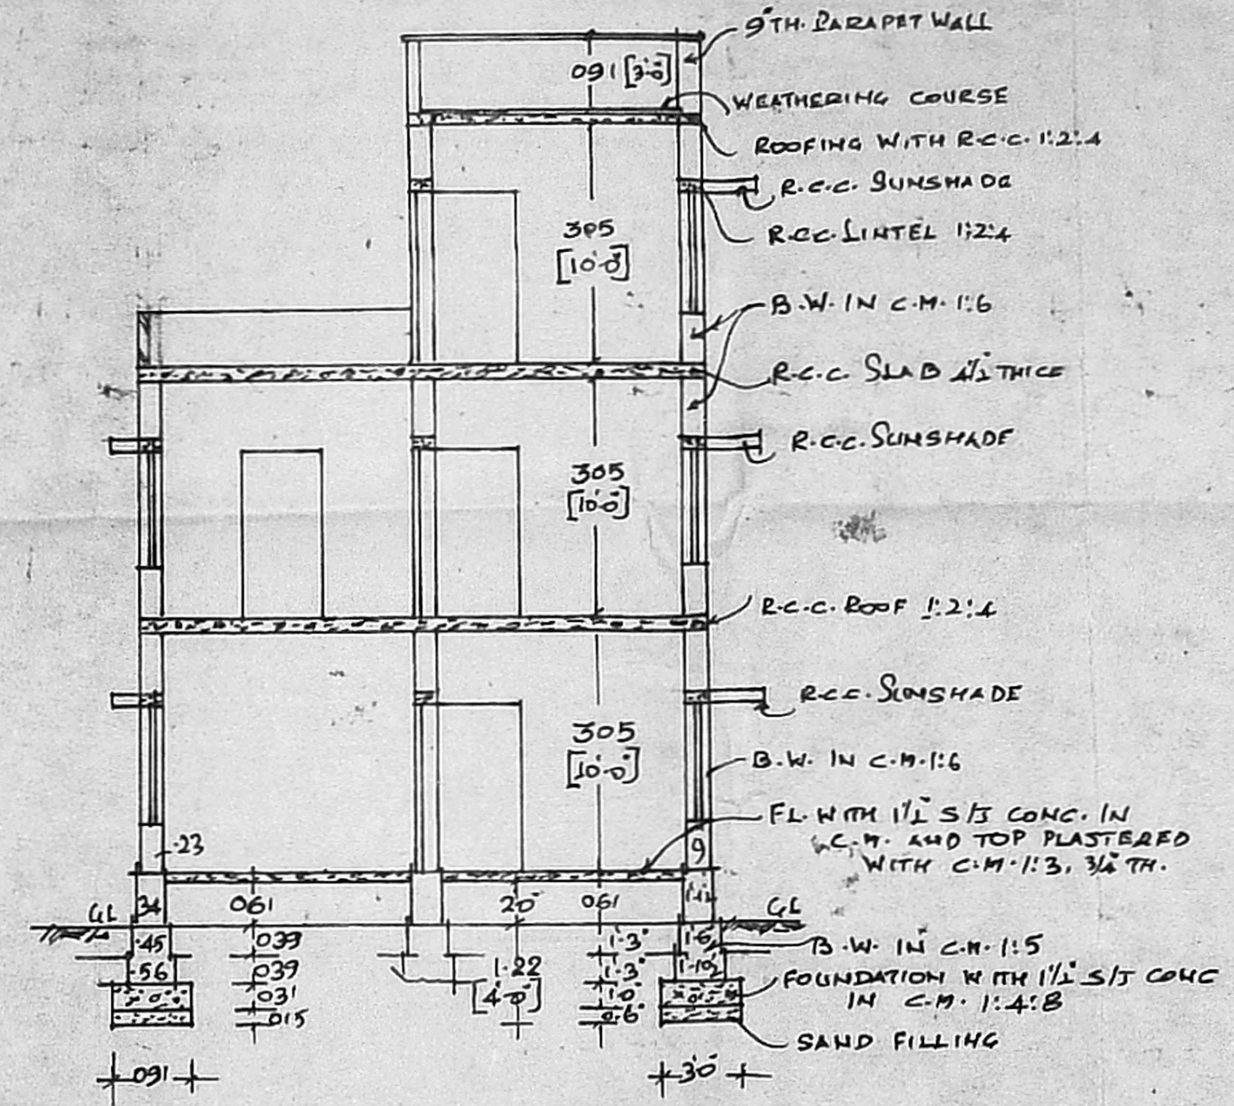 9"TH. PARAPET WALL
091 [3'-0"]
WEATHERING COURSE
ROOFING WITH R.C.C. 1:2:4
R.C.C. SUNSHADE
R.C.C. LINTEL 1:2:4
305
[10'-0"]
B.W. IN C.M. 1:6
R.C.C. SLAB 4½" THICK
R.C.C. SUNSHADE
305
[10'-0"]
R.C.C. ROOF 1:2:4
R.C.C. SUNSHADE
305
[10'-0"]
B.W. IN C.M. 1:6
FL. WITH 1½" S/J CONC. IN
C.M. AND TOP PLASTERED
WITH C.M. 1:3, ¾" TH.
.23
9
GL 34 061 2'0" 061 1'-1½ GL
.45 039 1'-3" 1'-6
B.W. IN C.M. 1:5
.56 039 1.22 1'-3" 1'-10½
FOUNDATION WITH 1½" S/J CONC
IN C.M. 1:4:8
031 [4'-0"] 1'-0"
015 0'-6"
SAND FILLING
091 3'0"